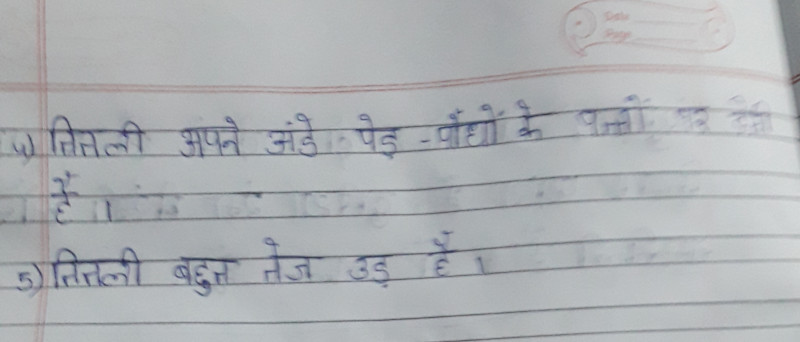 Date
Page
4) तितली अपने अंडे पेड़ -पौंधों के पत्तों पर देती
हैं ।
5) तितली बहुत तेज उड़ हैं ।